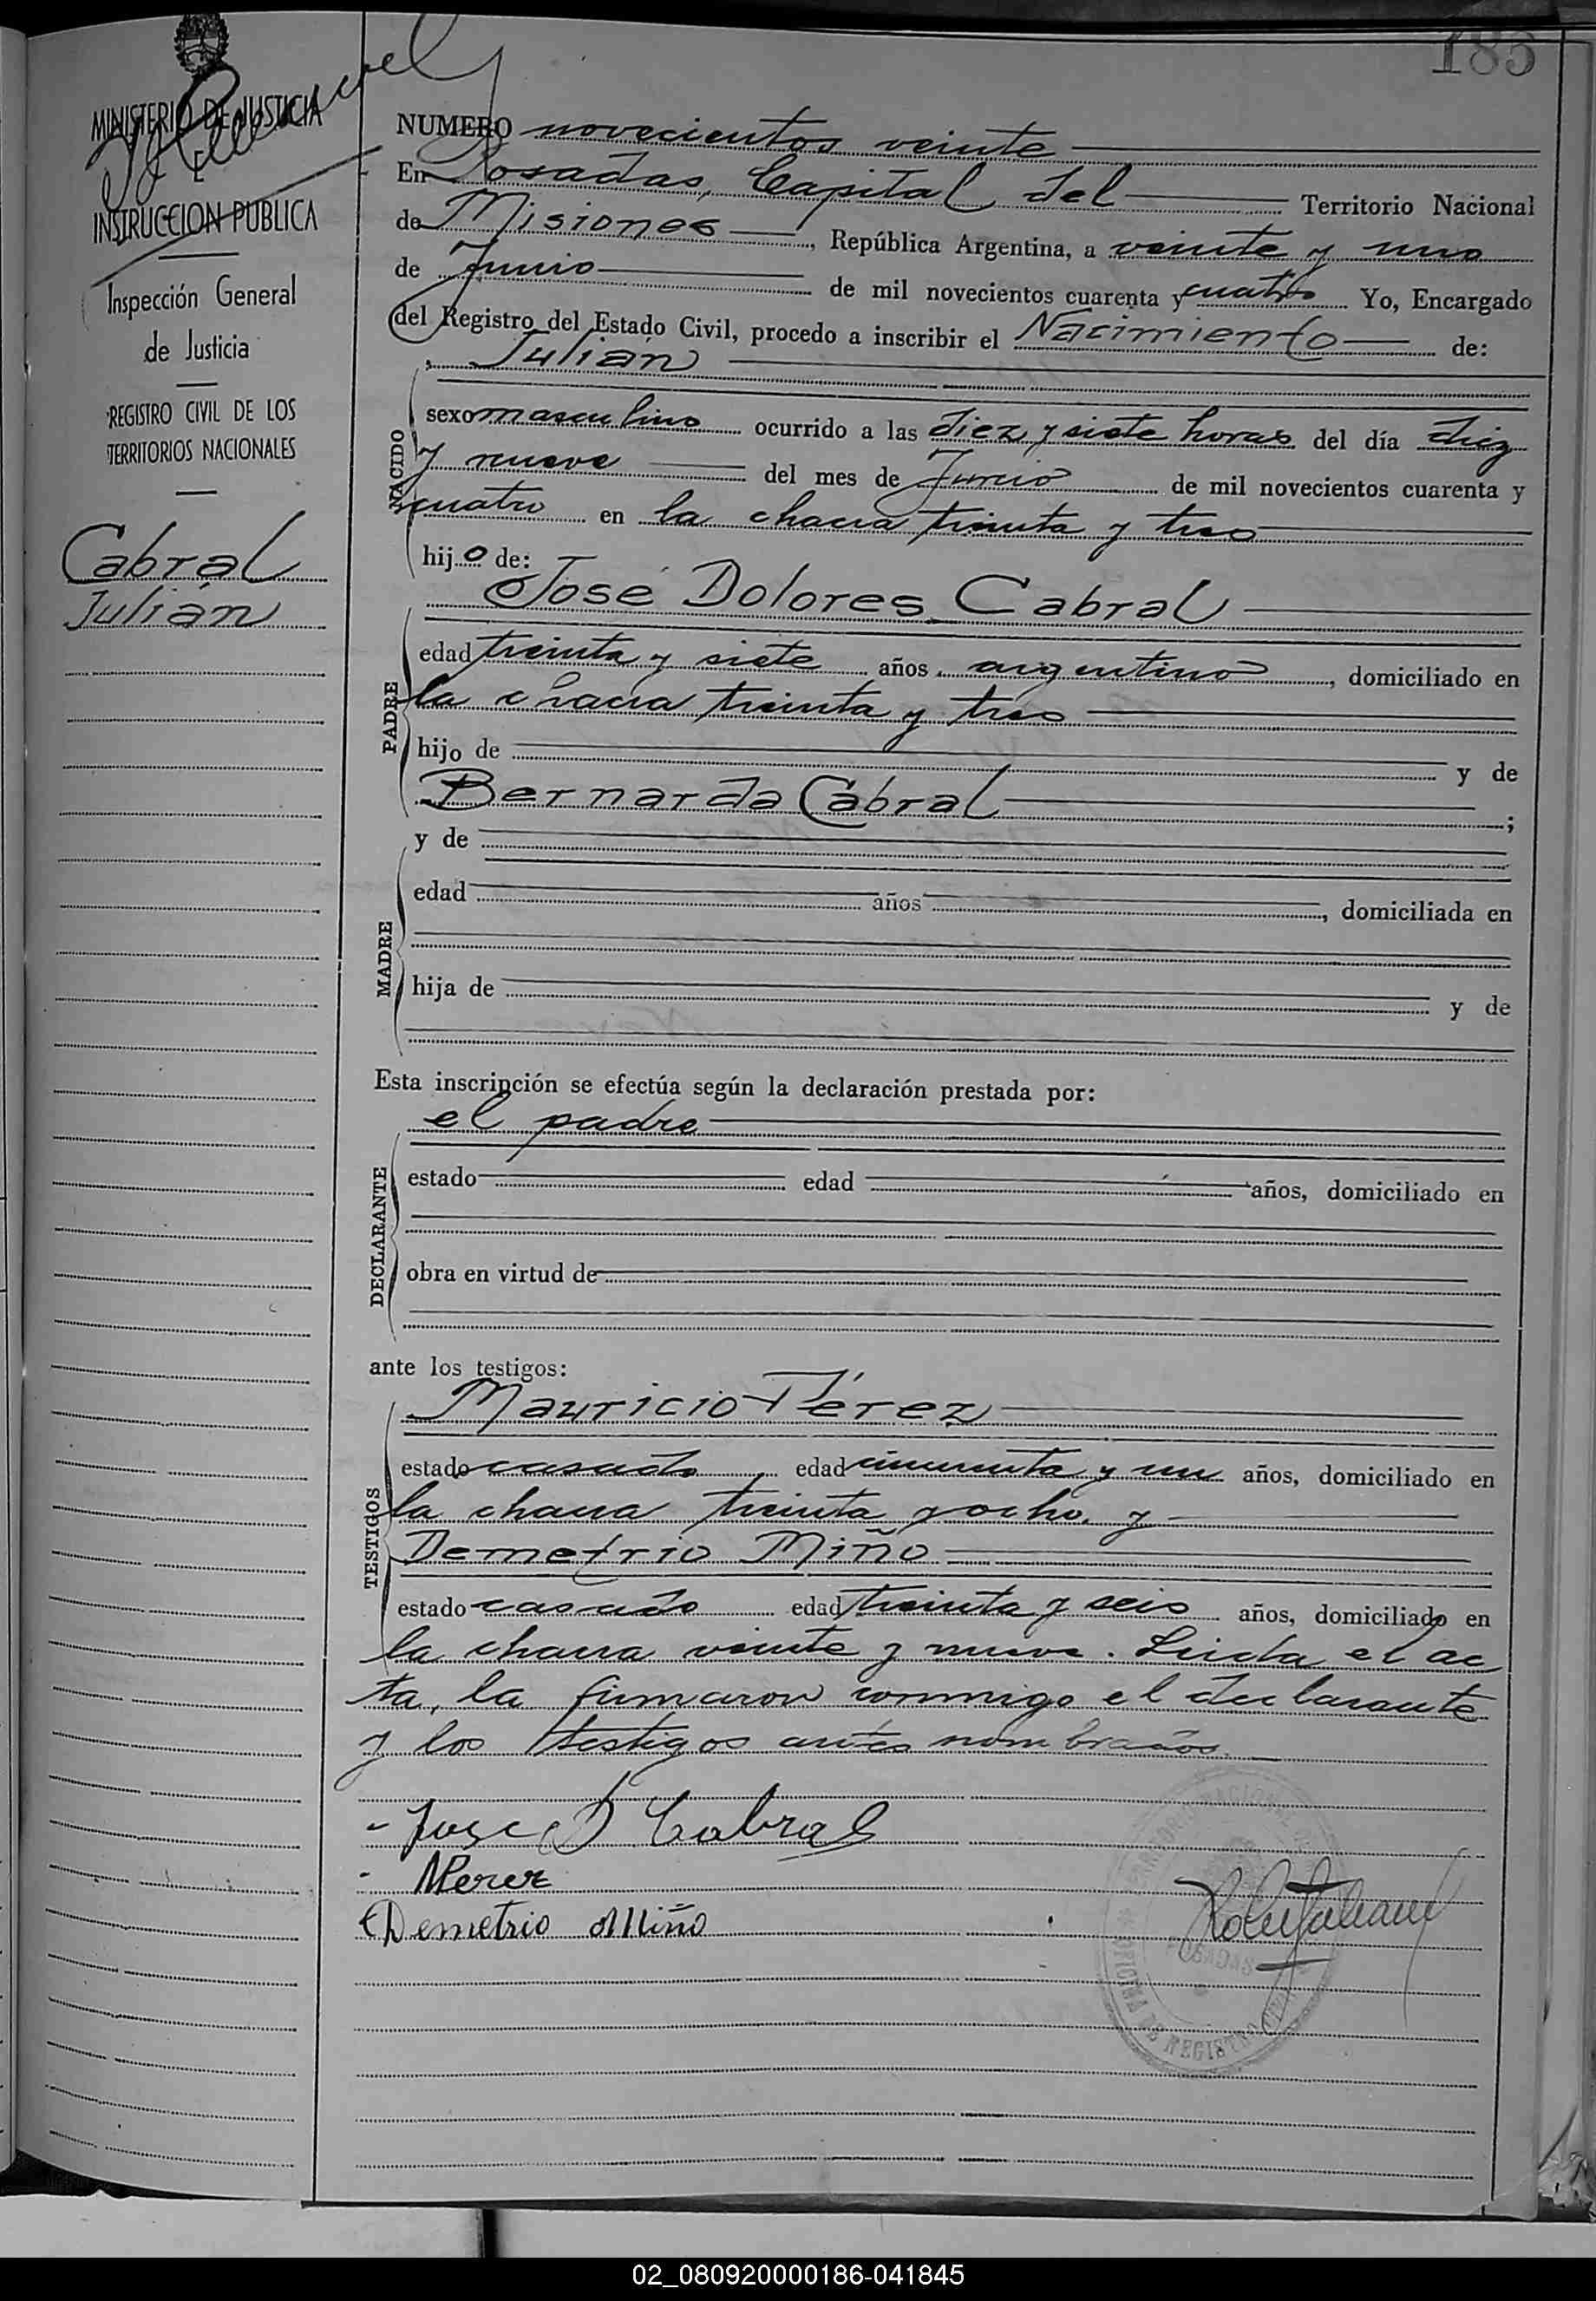 185
MINISTERIO DE JUSTICIA
E
INSTRUCCION PUBLICA
Inspección General
de Justicia
REGISTRO CIVIL DE LOS
TERRITORIOS NACIONALES
Cabral
Julián
NUMERO novecientos veinte
En Posadas, Capital del Territorio Nacional
de Misiones, República Argentina, a veinte y uno
de Junio de mil novecientos cuarenta y cuatro Yo, Encargado
del Registro del Estado Civil, procedo a inscribir el Nacimiento de:
Julián
NACIDO
sexo masculino ocurrido a las diez y siete horas del día diez
y nueve del mes de Junio de mil novecientos cuarenta y
cuatro en la chacra treinta y tres
hijo de:
José Dolores Cabral
PADRE
edad treinta y siete años, argentino, domiciliado en
la chacra treinta y tres
hijo de y de
Bernarda Cabral ;
y de
MADRE
edad años , domiciliada en
hija de y de
Esta inscripción se efectúa según la declaración prestada por:
el padre
DECLARANTE
estado edad años, domiciliado en
obra en virtud de
ante los testigos:
Mauricio Pérez
TESTIGOS
estado casado, edad cincuenta y un años, domiciliado en
la chacra treinta y ocho, y
Demetrio Miño
estado casado edad treinta y seis años, domiciliado en
la chacra veinte y nueve. Leida el ac
ta, la firmaron conmigo el declarante
y los testigos antes nombrados.
Jose D Cabral
MPerez
Demetrio Miño
POSADAS
OFICINA DE REGISTRO CIVIL
02_080920000186-041845